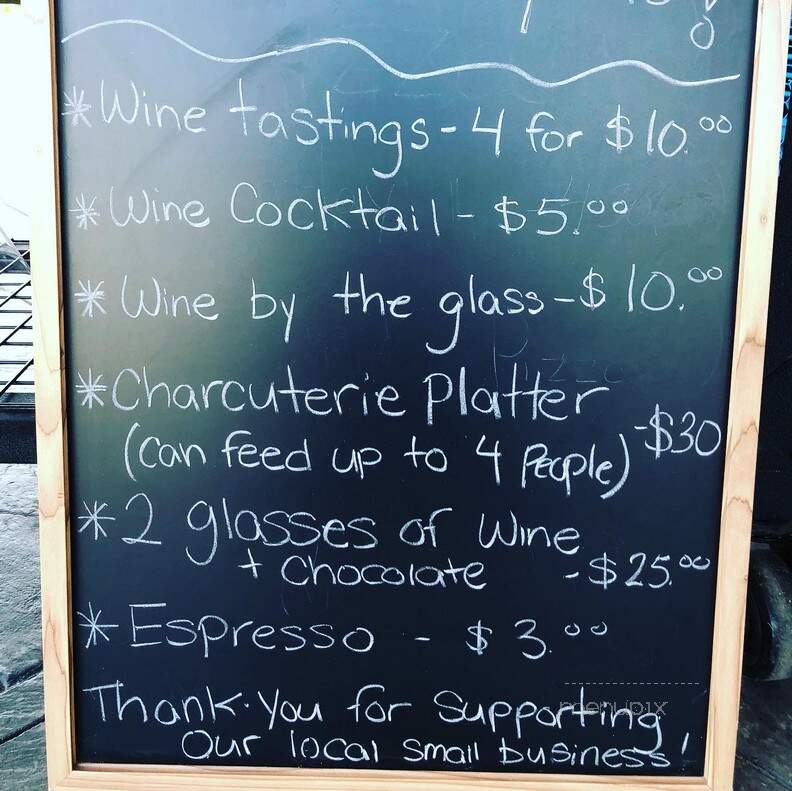 *Wine tastings - 4 for $10.00
*Wine Cocktail - $5.00
*Wine by the glass - $10.00
*Charcuterie Platter
(can feed up to 4 People) -$30
*2 glasses of Wine
+ Chocolate - $25.00
*Espresso - $3.00
Thank You for Supporting
menupix
Our local Small business!